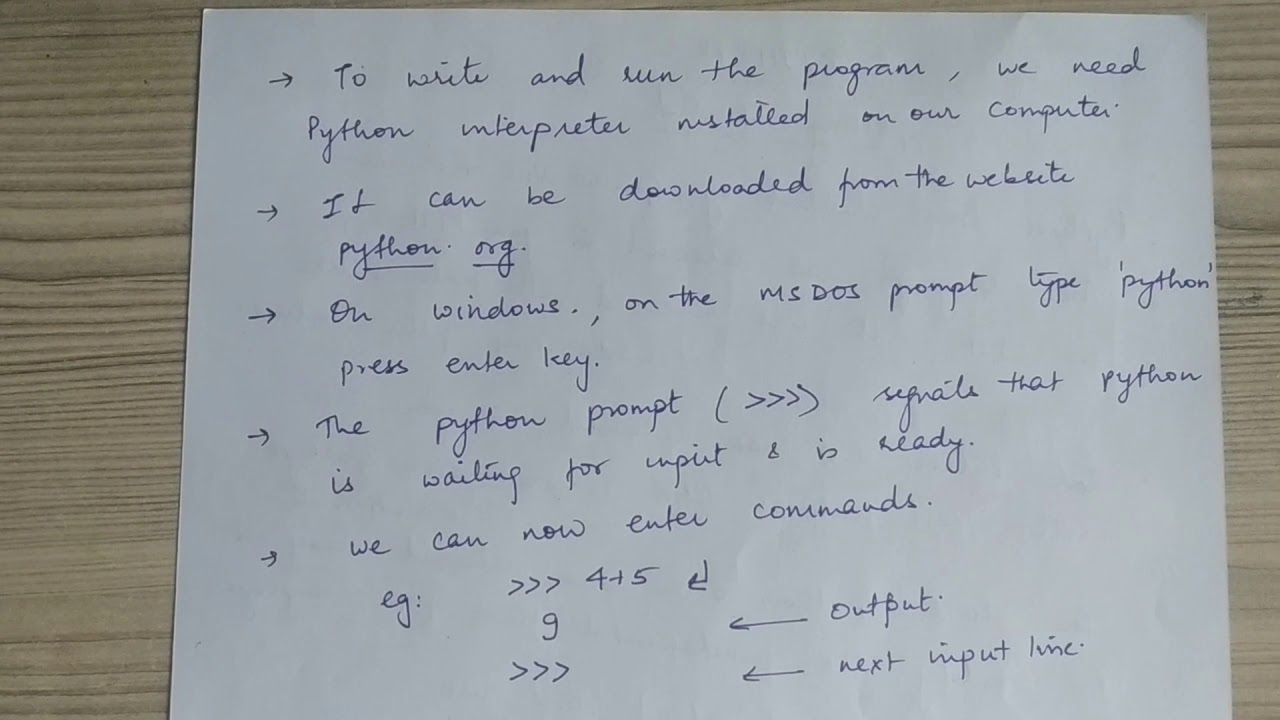 → To write and run the program, we need
Python interpreter installed on our computer.
→ It can be downloaded from the website
python. org.
→ On windows., on the MSDOS prompt type 'python'
press enter key.
→ The python prompt (>>>) signals that python
is waiting for input & is ready.
→ we can now enter commands.
eg: >>> 4+5 ↲
9 ← output.
>>> ← next input line.